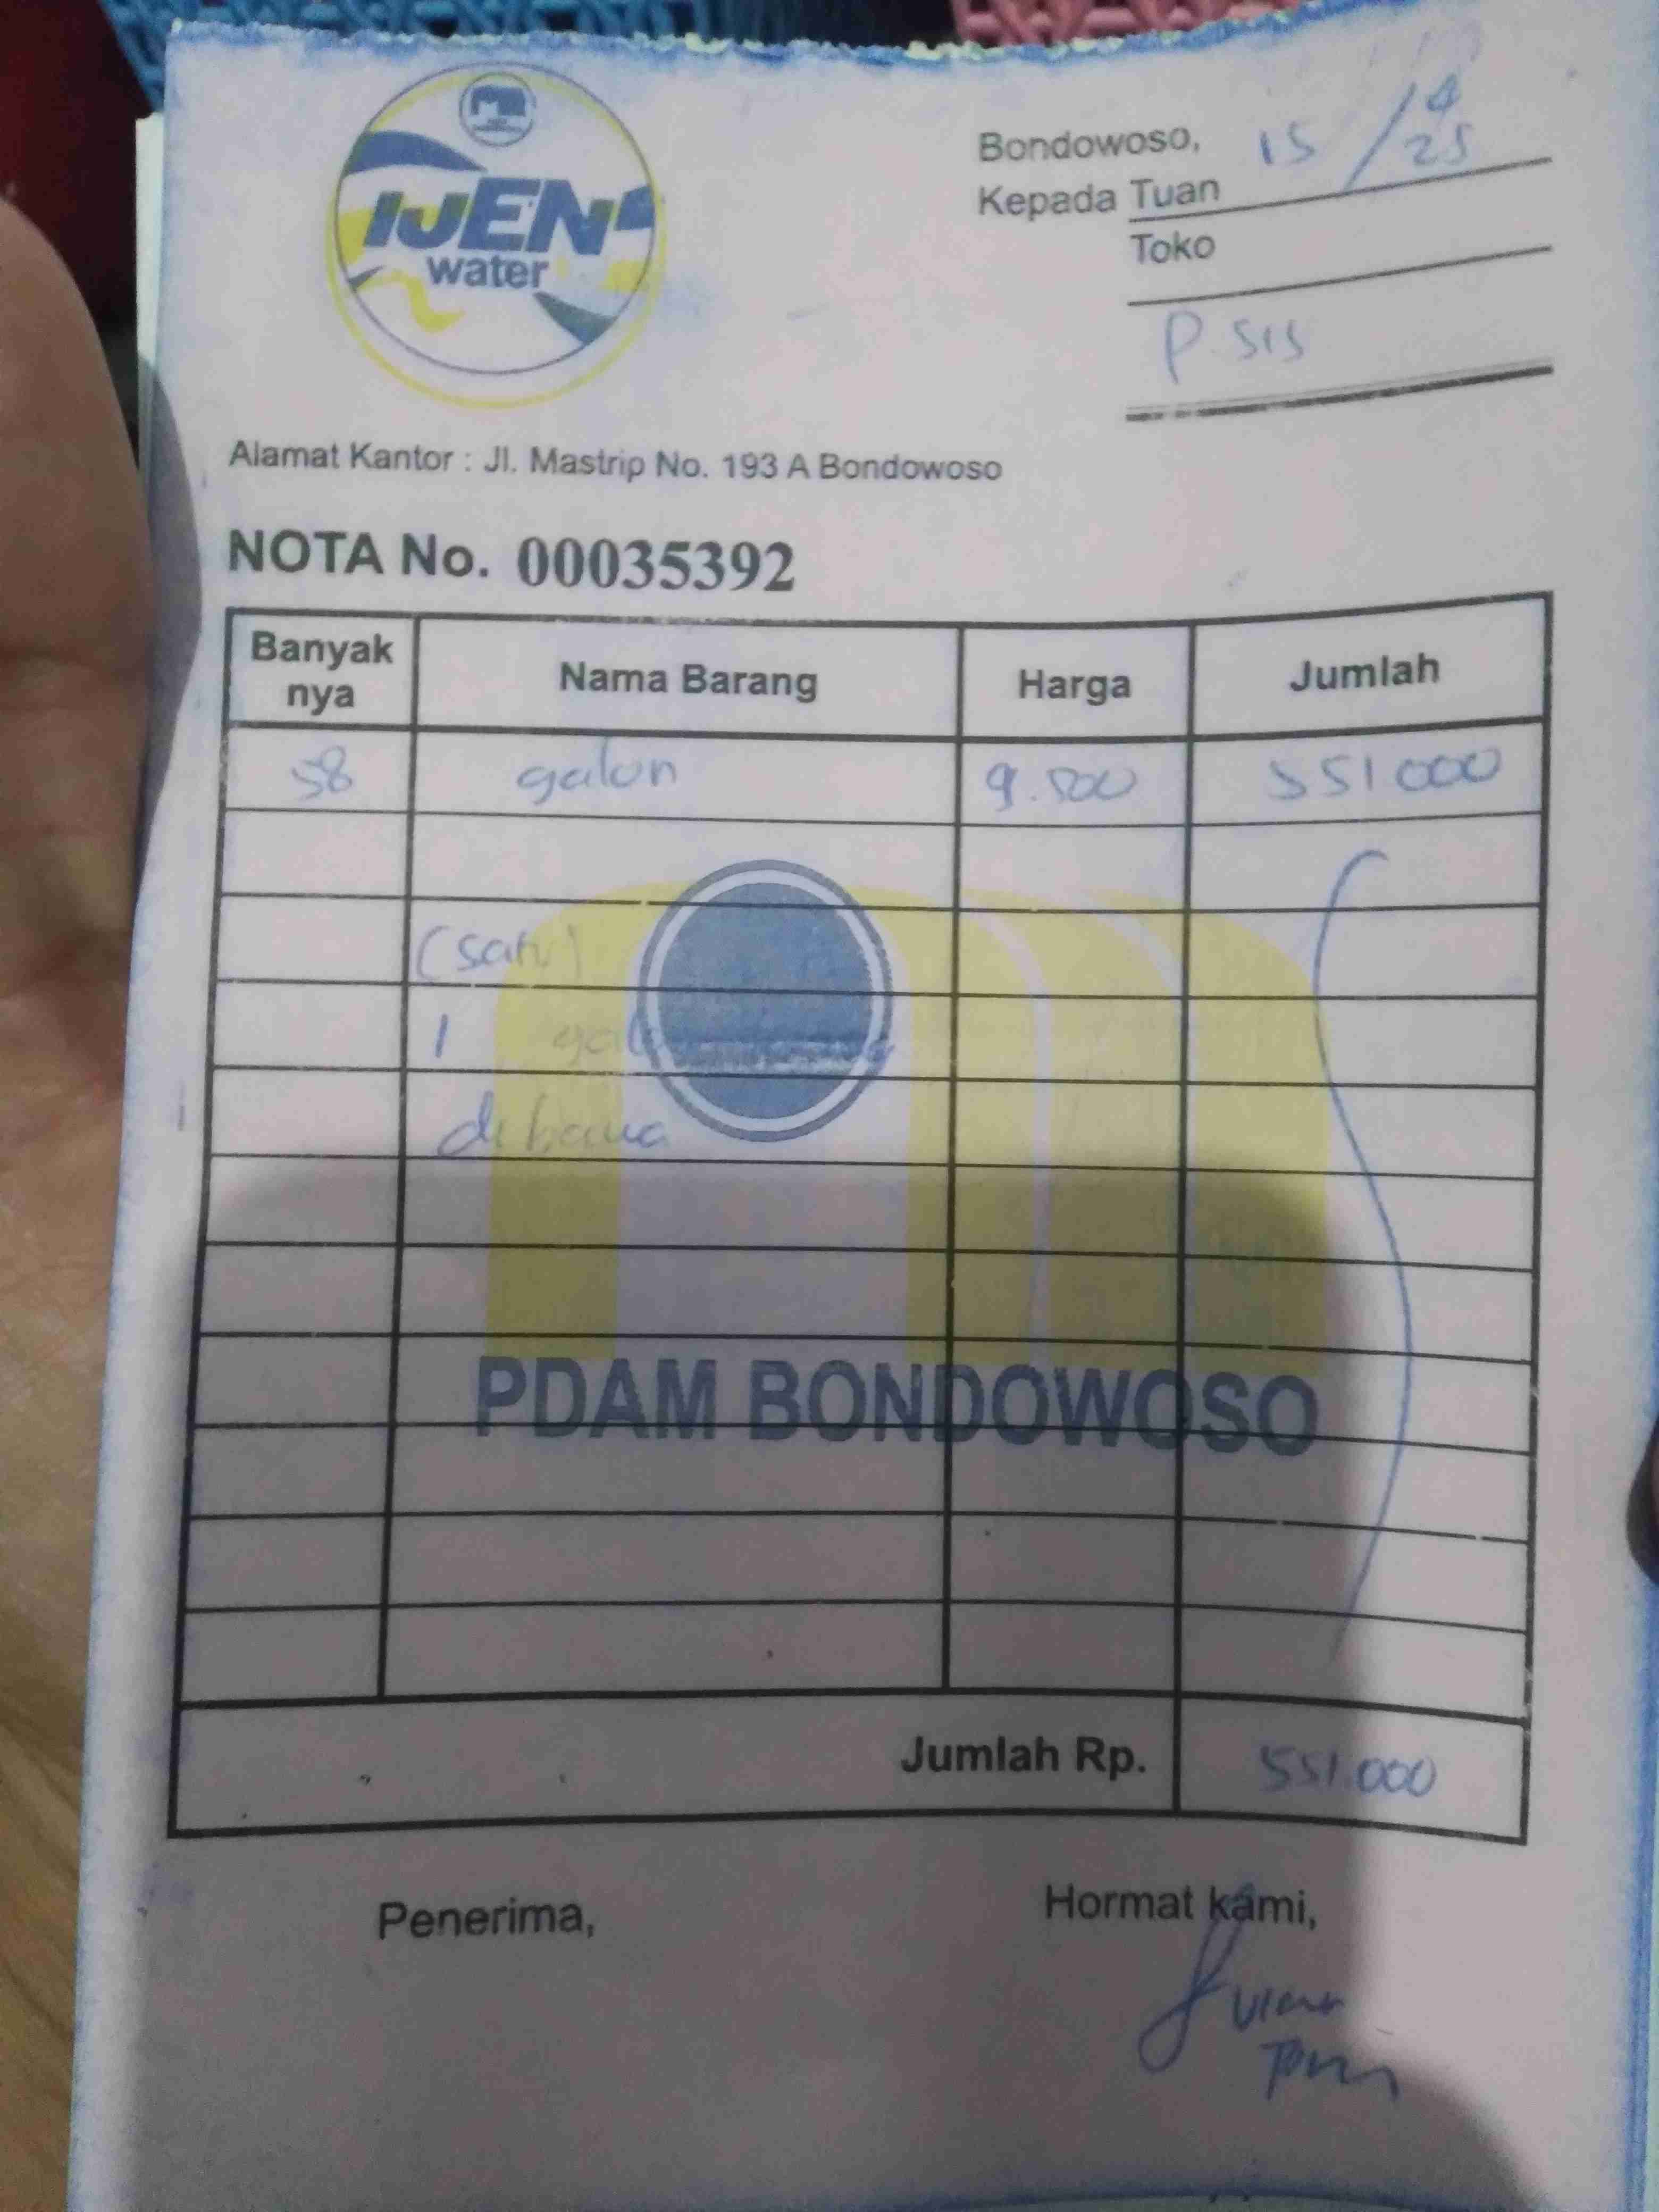 IJEN
water
Bondowoso, 15/4 25
Kepada Tuan
Toko
P. SIS
Alamat Kantor : Jl. Mastrip No. 193 A Bondowoso
NOTA No. 00035392
Banyak nya Nama Barang Harga Jumlah
58 galon 9.500 551000
(satu)
1 galon
di bawa
PDAM BONDOWOSO
Jumlah Rp. 551.000
Penerima, Hormat kami,